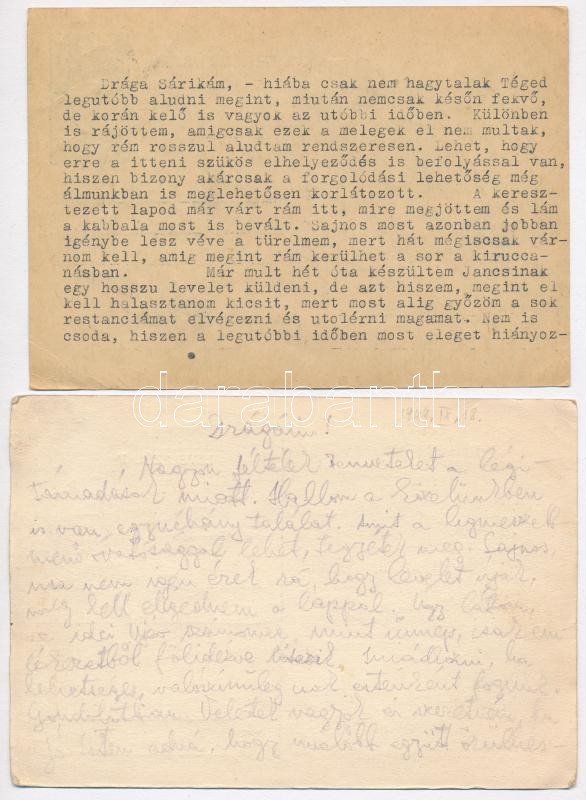 Drága Sárikám, - hiába csak nem hagytalak Téged
legutóbb aludni megint, miután nemcsak későn fekvő,
de korán kelő is vagyok az utóbbi időben. Különben
is rájöttem, amigcsak ezek a melegek el nem multak,
hogy rém rosszul aludtam rendszeresen. Lehet, hogy
erre a itteni szükös elhelyeződés is befolyással van,
hiszen bizony akárcsak a forgolódási lehetőség még
álmunkban is meglehetősen korlátozott. A keresz-
tezett lapod már várt rám itt, mire megjöttem és lám
a kabbala most is bevált. Sajnos most azonban jobban
igénybe lesz véve a türelmem, mert hát mégiscsak vár-
nom kell, amig megint rám kerülhet a sor a kirucca-
násban. Már mult hét óta készültem Jancsinak
egy hosszu levelet küldeni, de azt hiszem, megint el
kell halasztanom kicsit, mert most alig győzöm a sok
restanciámat elvégezni és utolérni magamat. Nem is
csoda, hiszen a legutóbbi időben most eleget hiányoz-
darabanth
Drágáim!
Nagyon féltelek benneteket a légi-
támadások miatt. Hallom a
is van egynéhány találat. a
lehet, tegyétek meg. Sajnos,
ma nem érek rá, hogy levelet írjak,
a lappal. Úgy látom,
az idei számomra, mint ünnep, csak em-
lékezetből
lehetséges, valószínűleg
gondolatban. Veletek vagyok
Isten adná, hogy mielőbb együtt